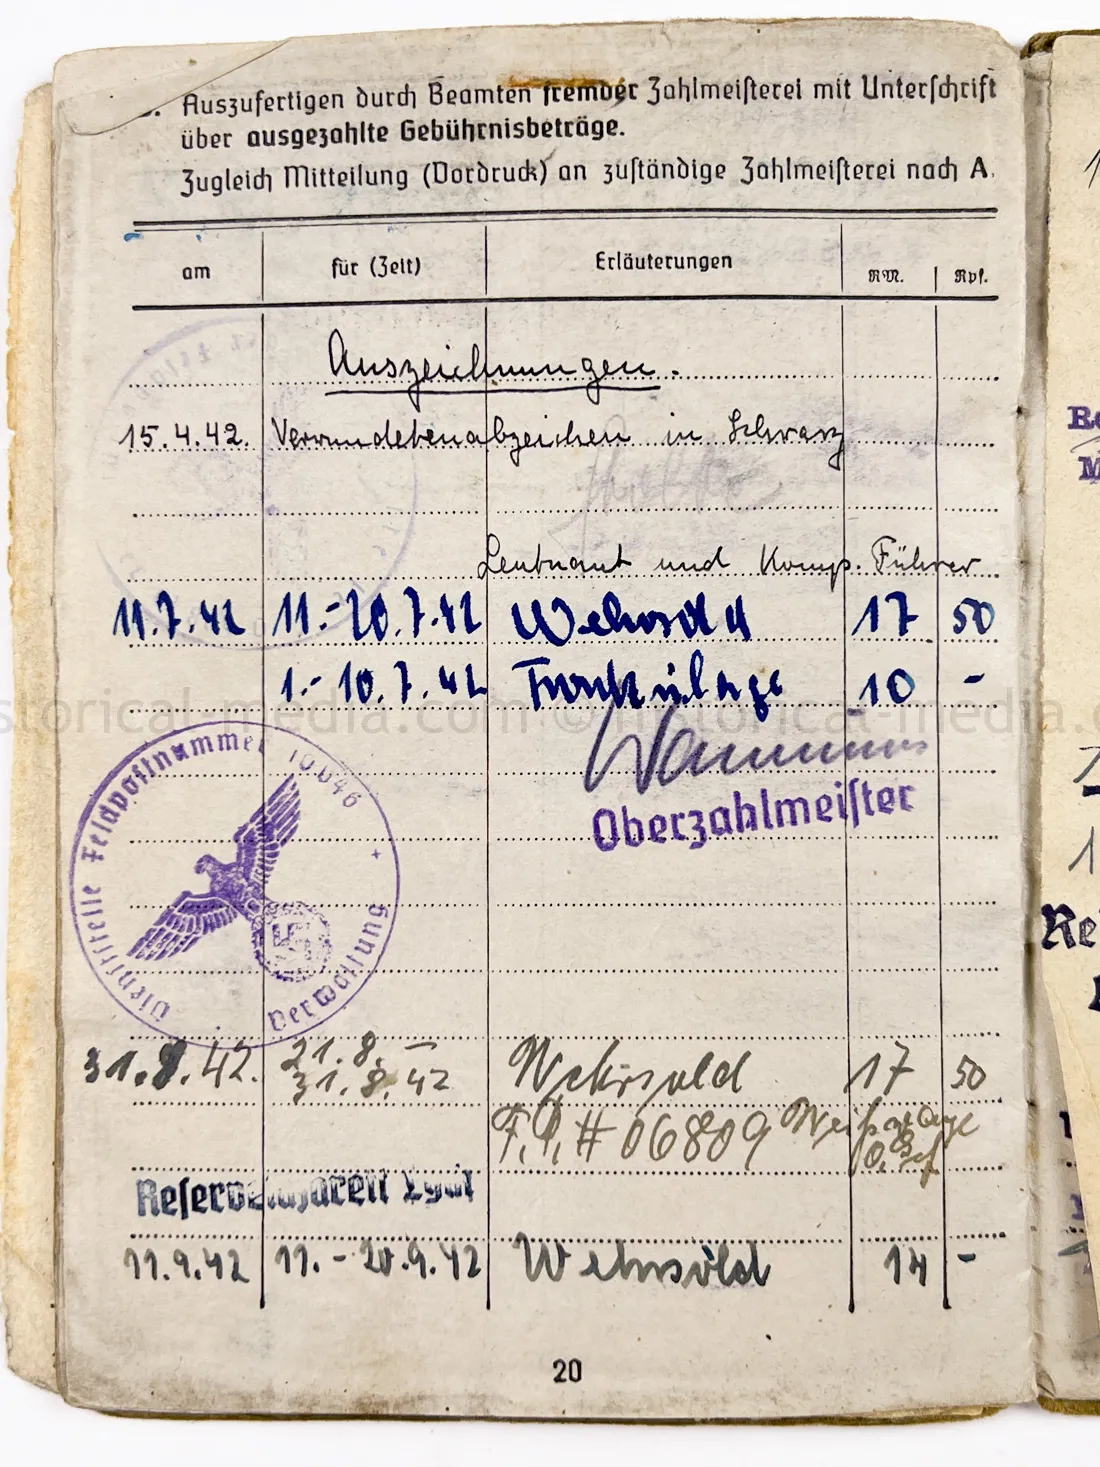 Auszufertigen durch Beamten fremder Zahlmeisterei mit Unterschrift
über ausgezahlte Gebührnisbeträge.
Zugleich Mitteilung (Vordruck) an zuständige Zahlmeisterei nach A.
am für (Zeit) Erläuterungen RM. Rpf.
Auszeichnungen.
15.4.42. Verwundetenabzeichen in Schwarz
Leutnant und Komp. Führer
11.7.42 11.-20.7.42 Wehrsold 17 50
1.-10.7.42 Frontzulage 10 -
historical-media.com © historical-media.c
Oberzahlmeister
Dienststelle Feldpostnummer 10646
Verwaltung
31.8.42. 21.8. –
31.8.42 Wehrsold 17 50
F.P. # 06809
Reservelazarett Lyck
11.9.42 11.-20.9.42 Wehrsold 14 -
20